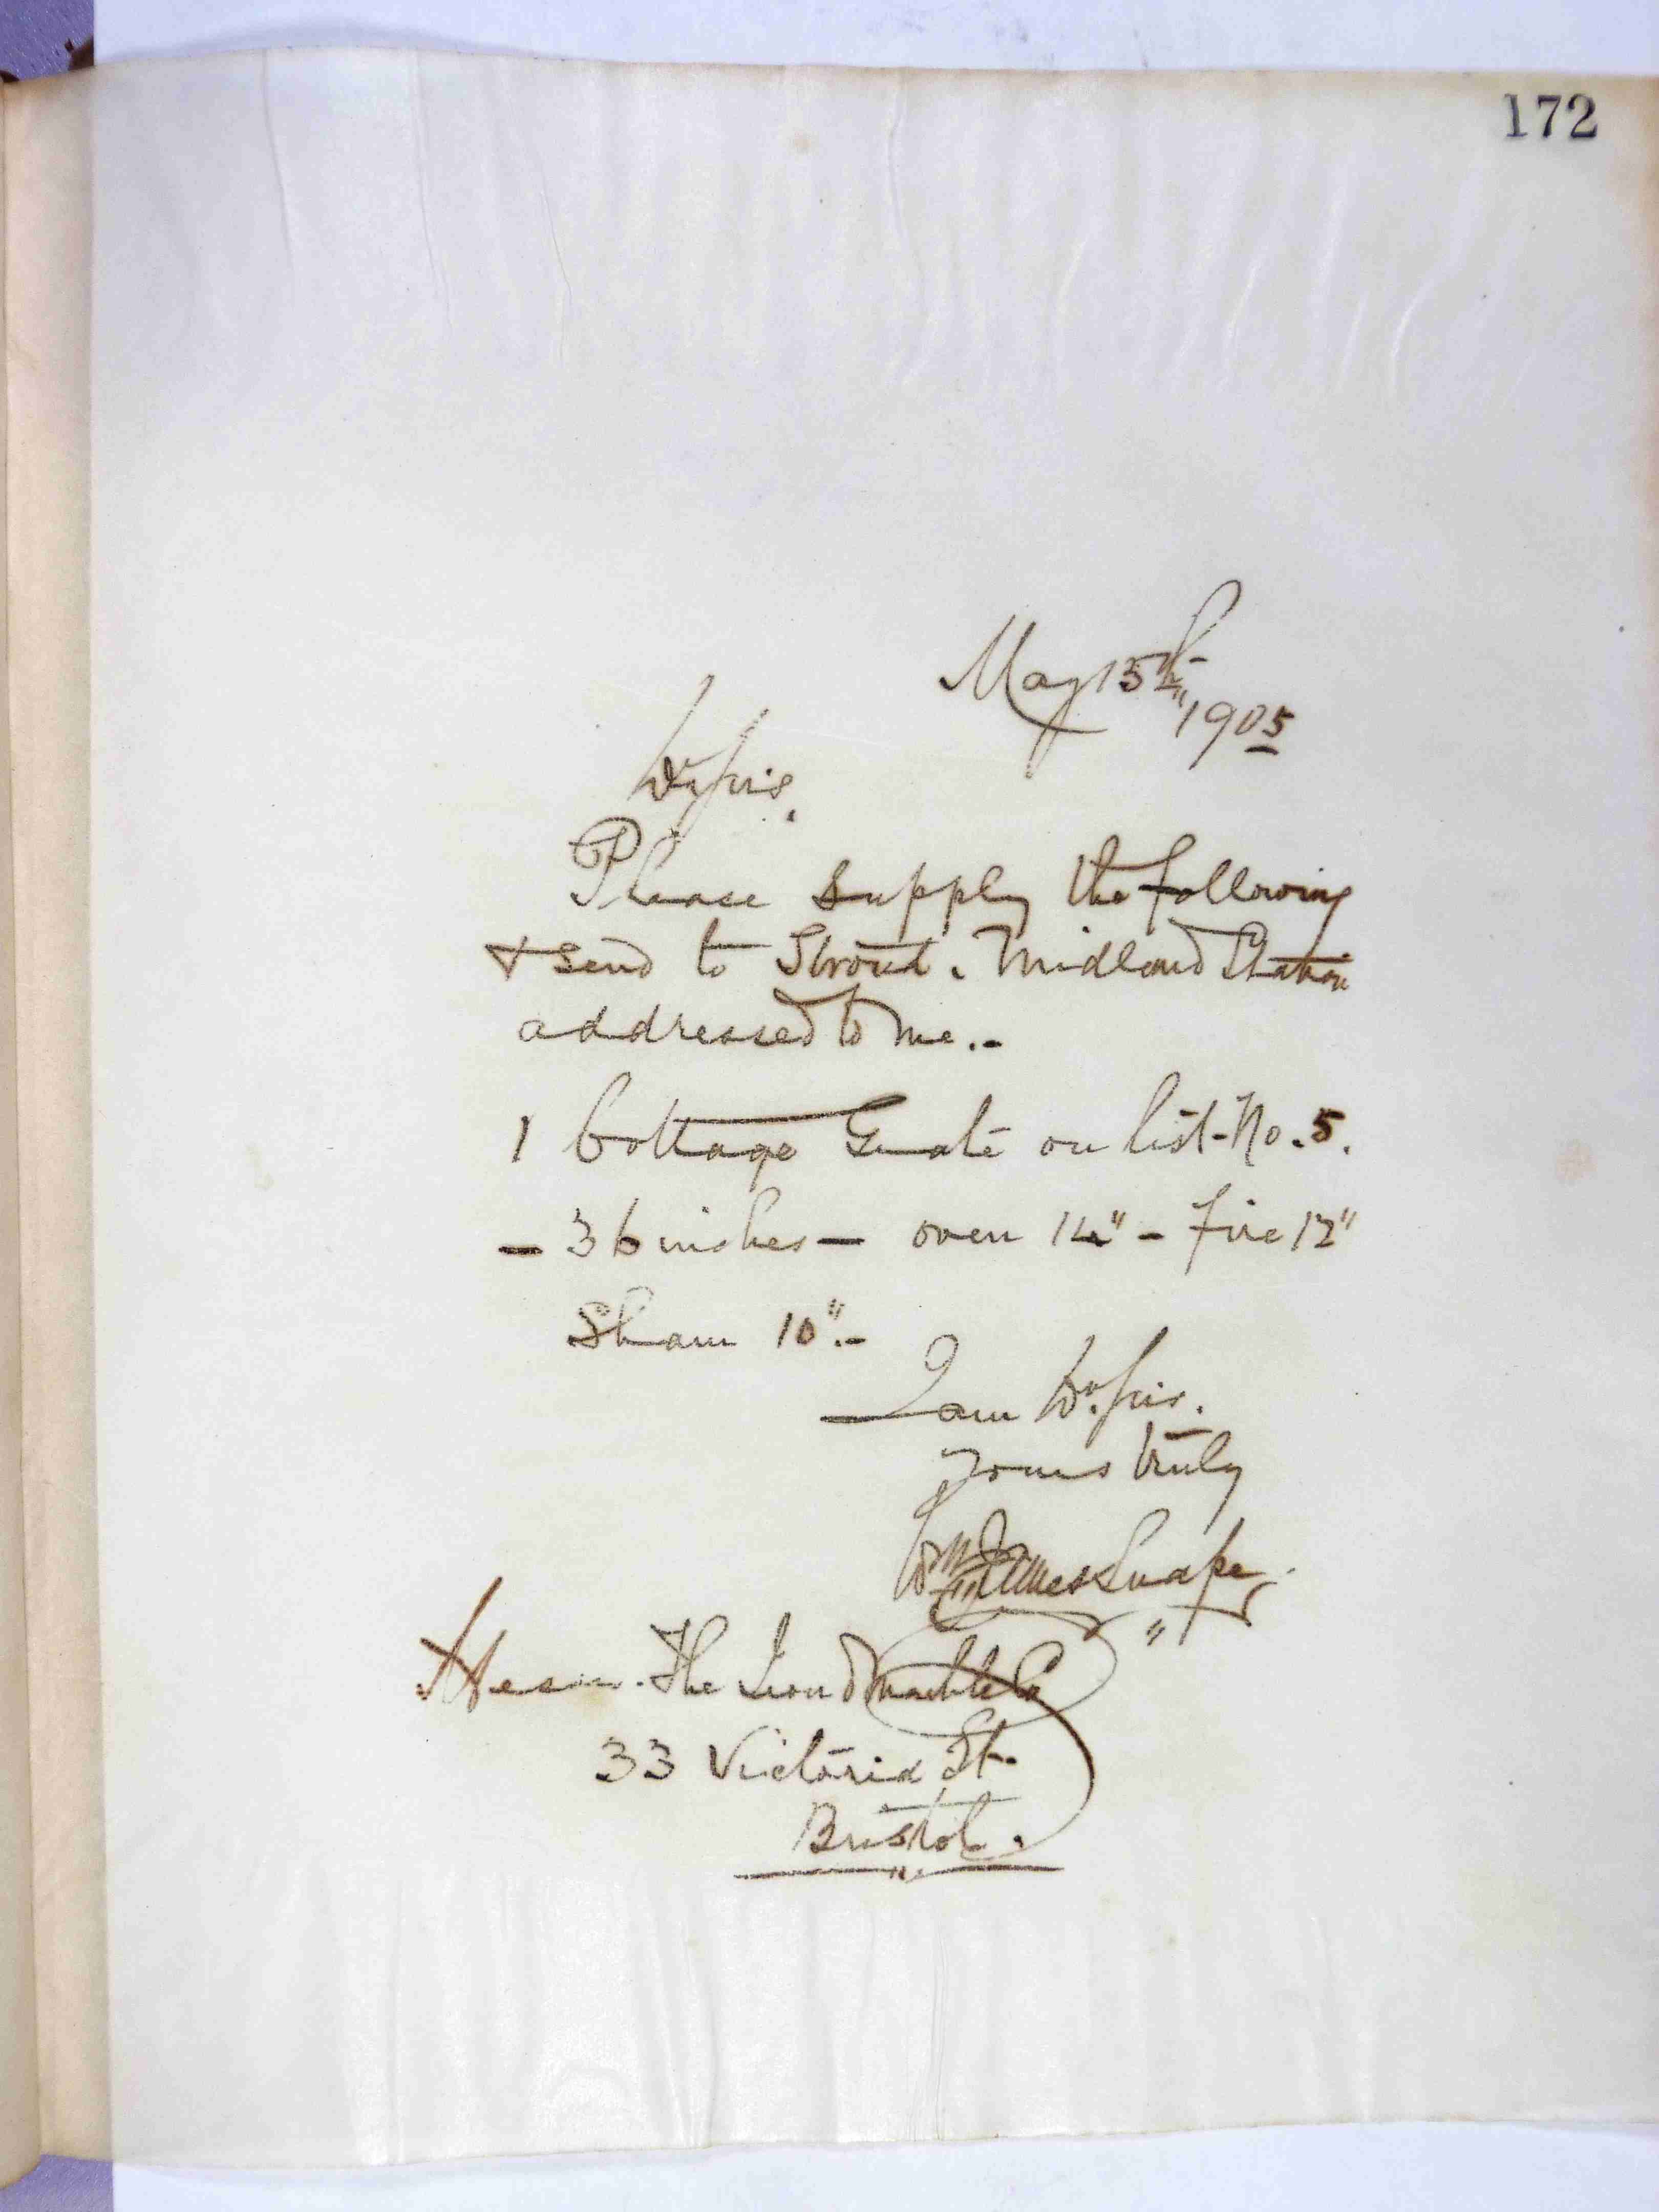 172
May 15th
1905
Dr Sirs,
Please supply the following
& send to Stroud. Midland Station
addressed to me.-
1 Cottage Grate on list No. 5.
- 36 inches - oven 14" - Fire 12"
Sham 10".-
I am Dr. Sirs.
Yours truly
Wm James Snape
Messrs. The Iron & Marble Co
33 Victoria St.
Bristol.